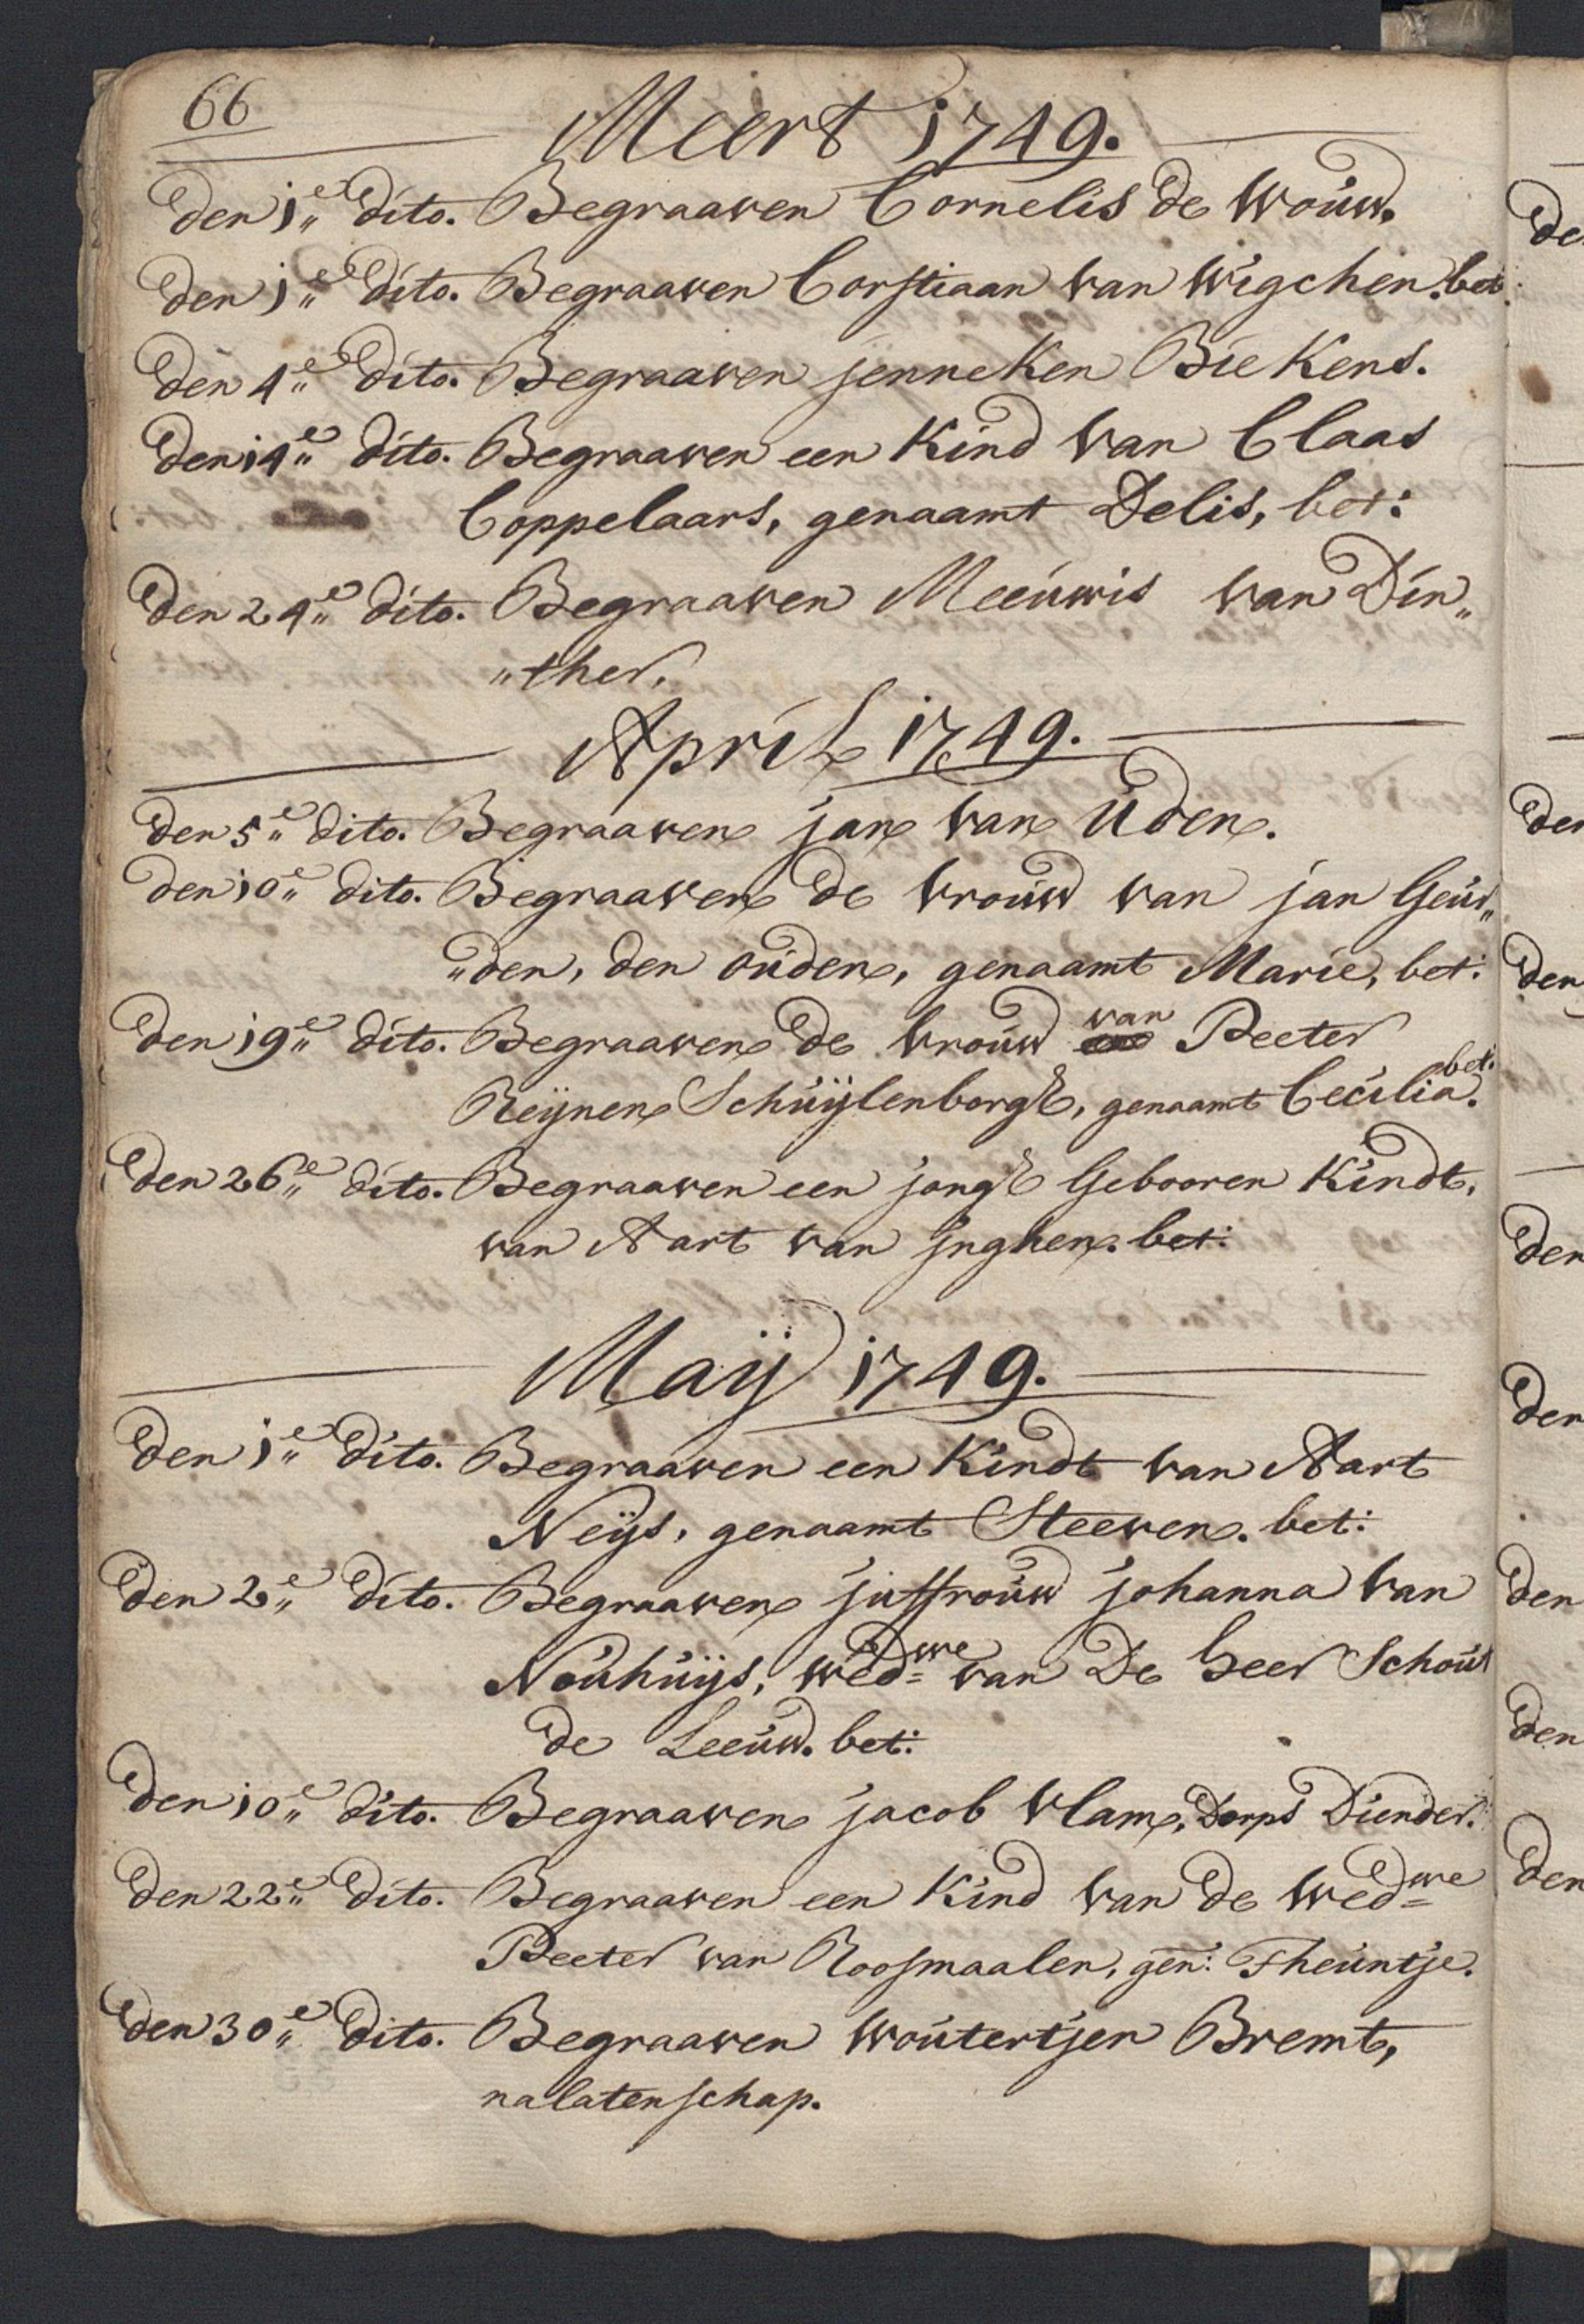 66
Meert 1749.
Den 1e„ Dito. Begraaven Cornelis De Wouw.
Den 1e„ Dito. Begraaven Corstiaan van Wigchen. bet:
Den 4e„ Dito. Begraaven jenneken Biekens.
Den 14e„ Dito. Begraaven een Kind van Claas
Coppelaars, genaamt Delis, bet:
Den 24e„ Dito. Begraaven Meeuwis van Din„
„ther.
April 1749.
Den 5e„ Dito. Begraaven jan van Uden.
Den 10e„ Dito. Begraaven De Vrouw van jan Geur„
„den, den ouden, genaamt Marie, bet:
Den 19e„ Dito. Begraaven De Vrouw van Peeter
Reijnen Schuijlenborgh, genaamt Cecilia. bet:
Den 26e„ Dito. Begraaven een jongh Gebooren Kindt,
van Aart van jnghen. bet:
Maij 1749.
Den 1e„ Dito. Begraaven een Kindt van Aart
Neijs, genaamt Steeven. bet:
Den 2e„ Dito. Begraaven juffrouw johanna van
Nouhuijs, Wedwe van De Heer Schout
De Leeuw. bet:
Den 10e„ Dito. Begraaven jacob Vlam, Dorps Diender.
Den 22e„ Dito. Begraaven een Kind van De Wedwe
Peeter van Roosmaalen, gen: Theuntje.
Den 30e„ Dito. Begraaven Woutertjen Bremt,
nalatenschap.
De
Den
Den
Den
Den
Den
Den
Den